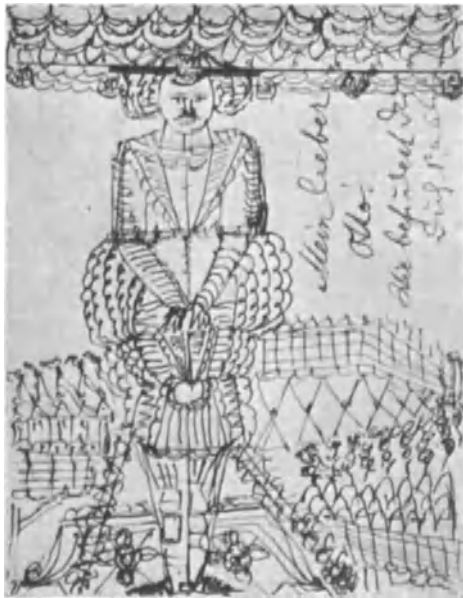 Mein lieber
Otto!
Wie befindest
Dich